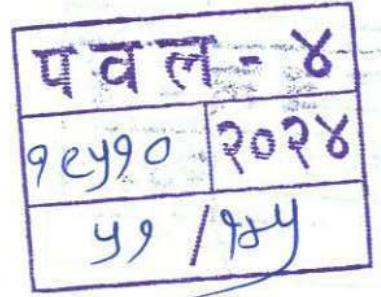 प व ल - ४
१९५१० २०२४
५१ / १४५